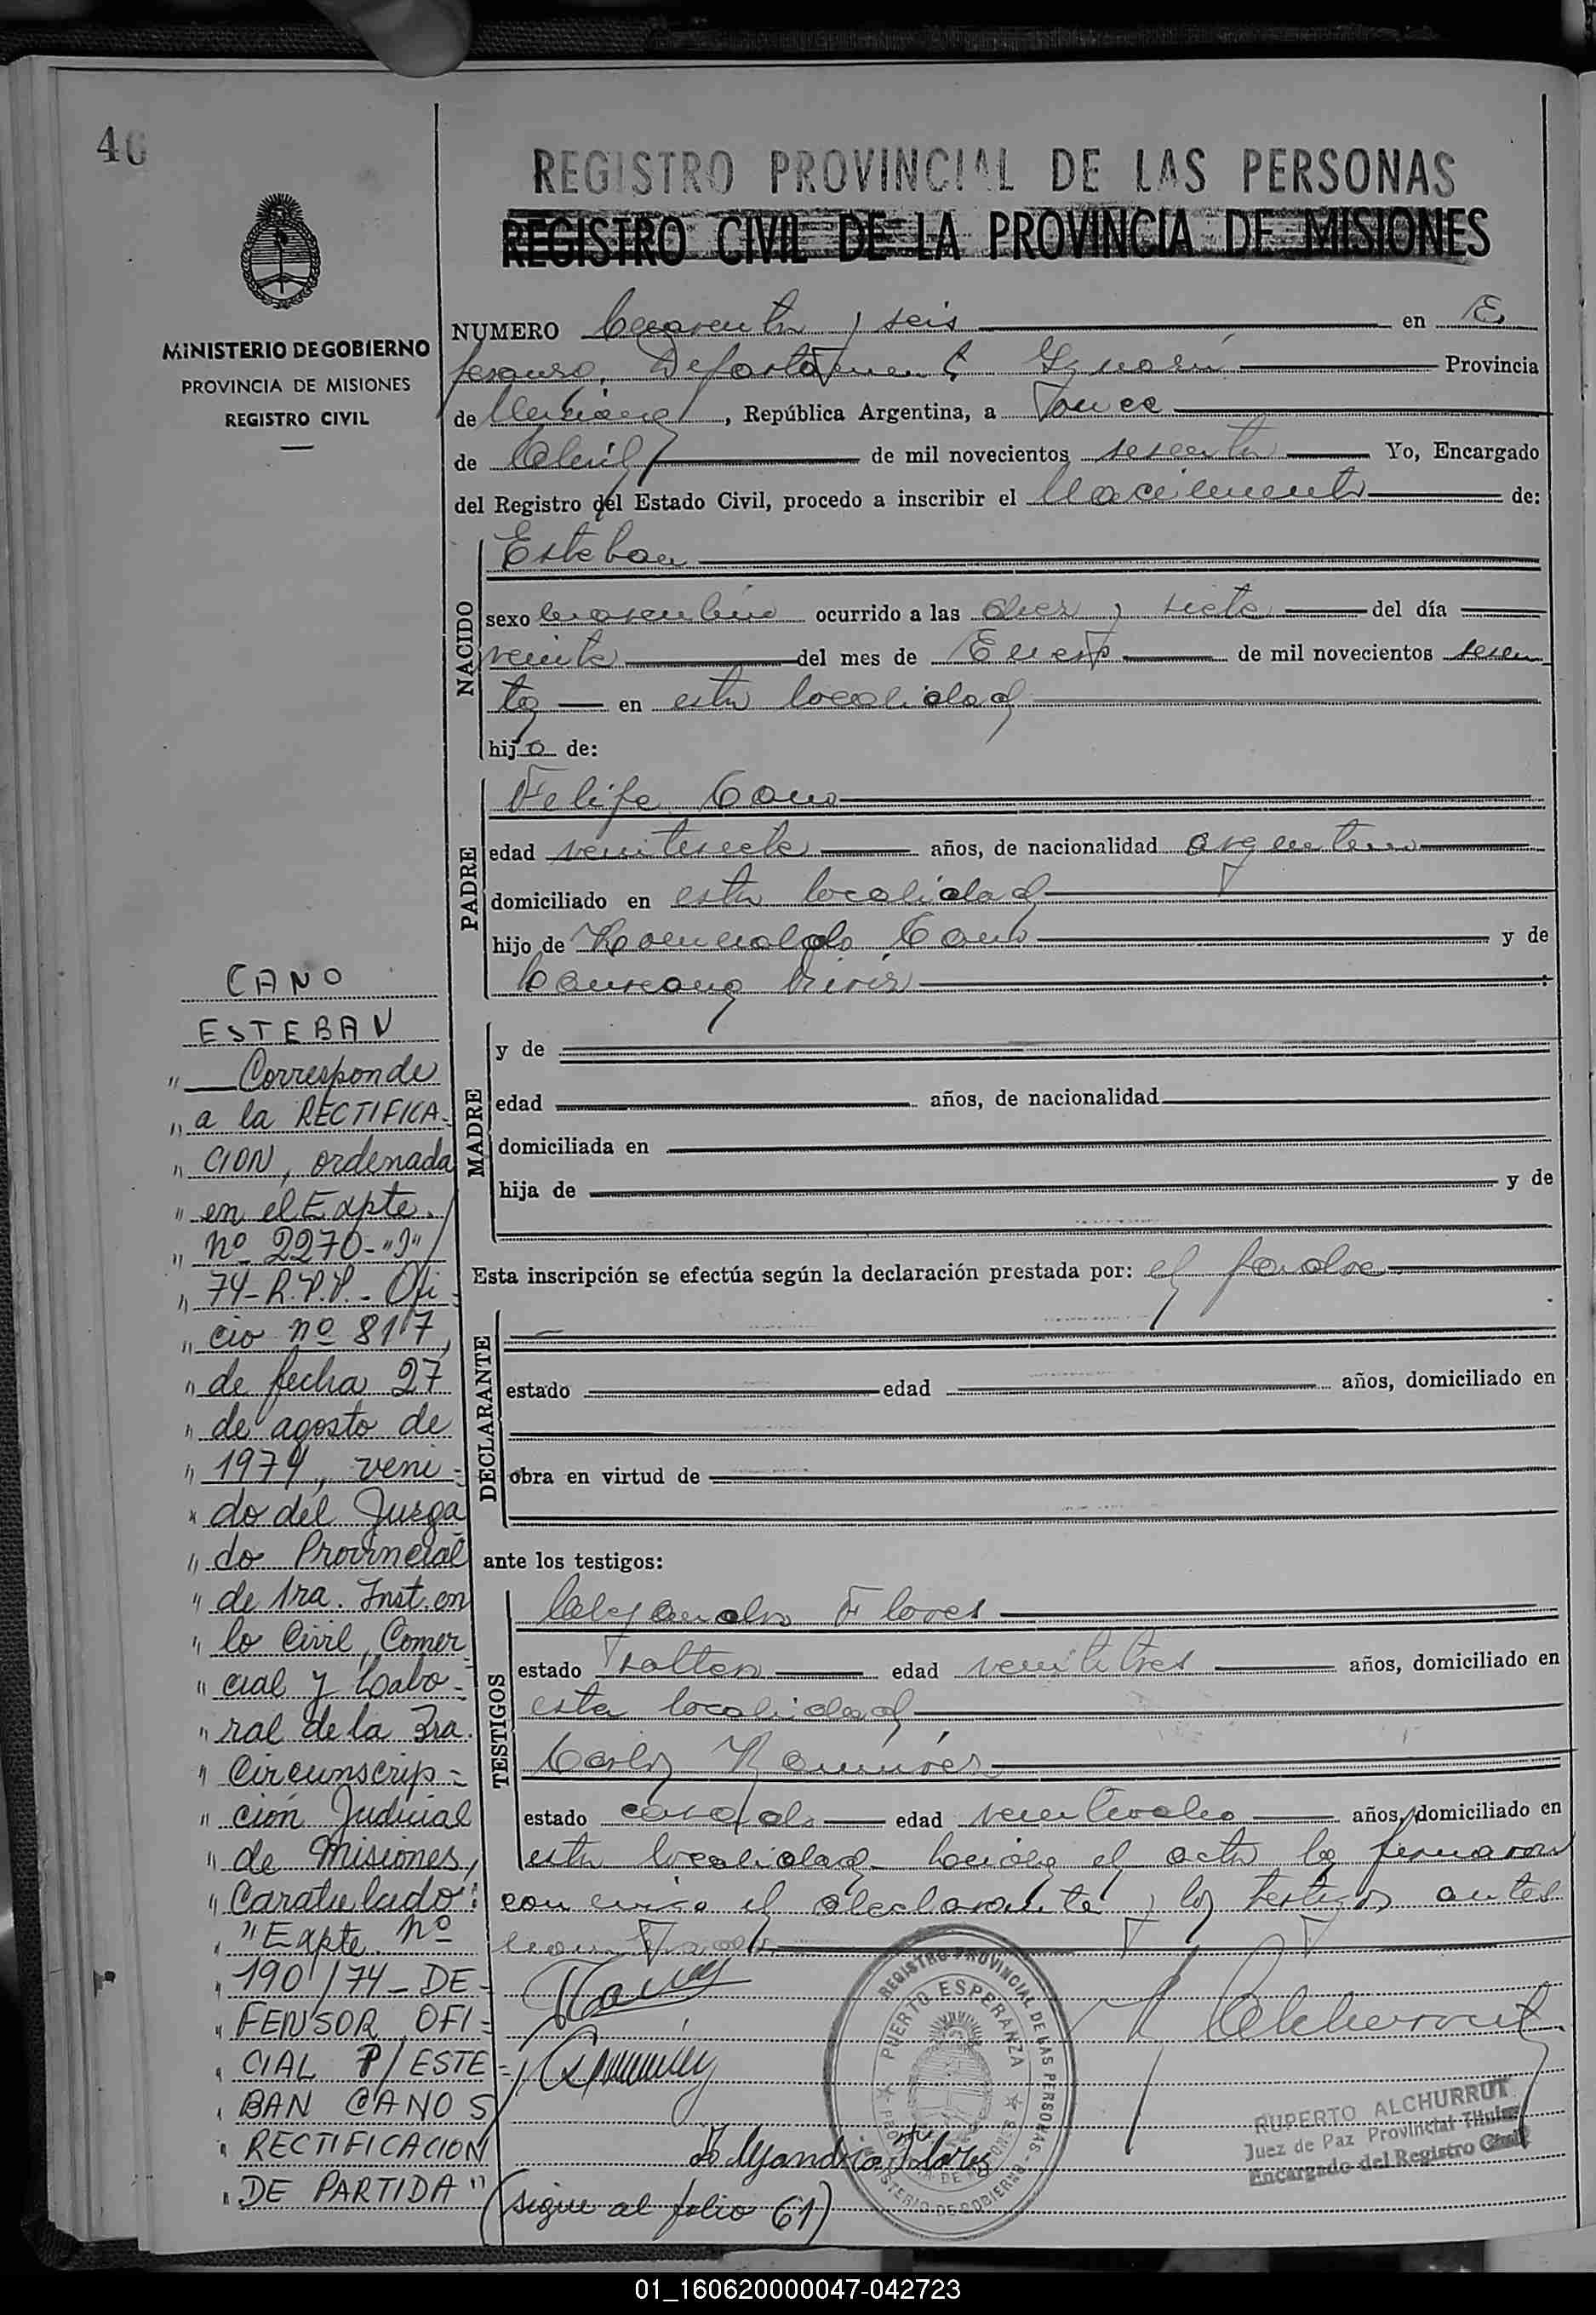 46
REGISTRO PROVINCIAL DE LAS PERSONAS
REGISTRO CIVIL DE LA PROVINCIA DE MISIONES
MINISTERIO DE GOBIERNO
PROVINCIA DE MISIONES
REGISTRO CIVIL
NUMERO Cuarenta y seis en E.
Departamento Iguazú Provincia
de Misiones, República Argentina, a Trece
de Abril de mil novecientos sesenta Yo, Encargado
del Registro del Estado Civil, procedo a inscribir el Nacimiento de:
NACIDO
Esteban
sexo masculino ocurrido a las diez y siete del día
veinte del mes de Enero de mil novecientos sesen
ta en esta localidad
hijo de:
PADRE
Felipe Cano
edad veintisiete años, de nacionalidad argentino
domiciliado en esta localidad
hijo de Romualdo Cano y de
MADRE
y de
edad años, de nacionalidad
domiciliada en
hija de y de
Esta inscripción se efectúa según la declaración prestada por: el padre
DECLARANTE
estado edad años, domiciliado en
obra en virtud de
ante los testigos:
TESTIGOS
Alejandro Flores
estado soltero edad veintitres años, domiciliado en
esta localidad
Carlos Ramírez
estado casado edad años, domiciliado en
esta localidad el acta la firmaron
conmigo el declarante y los testigos antes
nombrados
CANO
ESTEBAN
" Corresponde
" a la RECTIFICA-
" CION, ordenada
" en el Expte.
" nº 2270-"J"/
" 74-R.P.P.- Ofi-
" cio nº 817,
" de fecha 27
" de agosto de
" 1974, veni-
" do del Juzga-
" do Provincial
" de 1ra. Inst. en
" lo Civil, Comer
" cial y Labo-
" ral de la 3ra.
" Circunscrip-
" ción Judicial
" de Misiones,
" Caratulado:
" "Expte. nº
" 190/74-DE-
" FENSOR OFI-
" CIAL P/ESTE-
" BAN CANO S/
" RECTIFICACION
" DE PARTIDA"
(sigue al folio 61)
REGISTRO PROVINCIAL DE LAS PERSONAS - MINISTERIO DE GOBIERNO
PUERTO ESPERANZA
PROVINCIA DE MISIONES
RUPERTO ALCHURRUT
Juez de Paz Provincial Titular
Encargado del Registro Civil
01_160620000047-042723